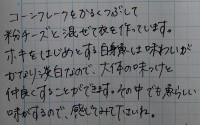 コーンフレークをかるくつぶして
粉チーズと混ぜて衣を作っています。
ホキをはじめとする白身魚は味わいが
かなり淡白なので、大体の味つけと
仲良くすることができます。その中でも素らしい
味がするので、感じてみて下さいね。